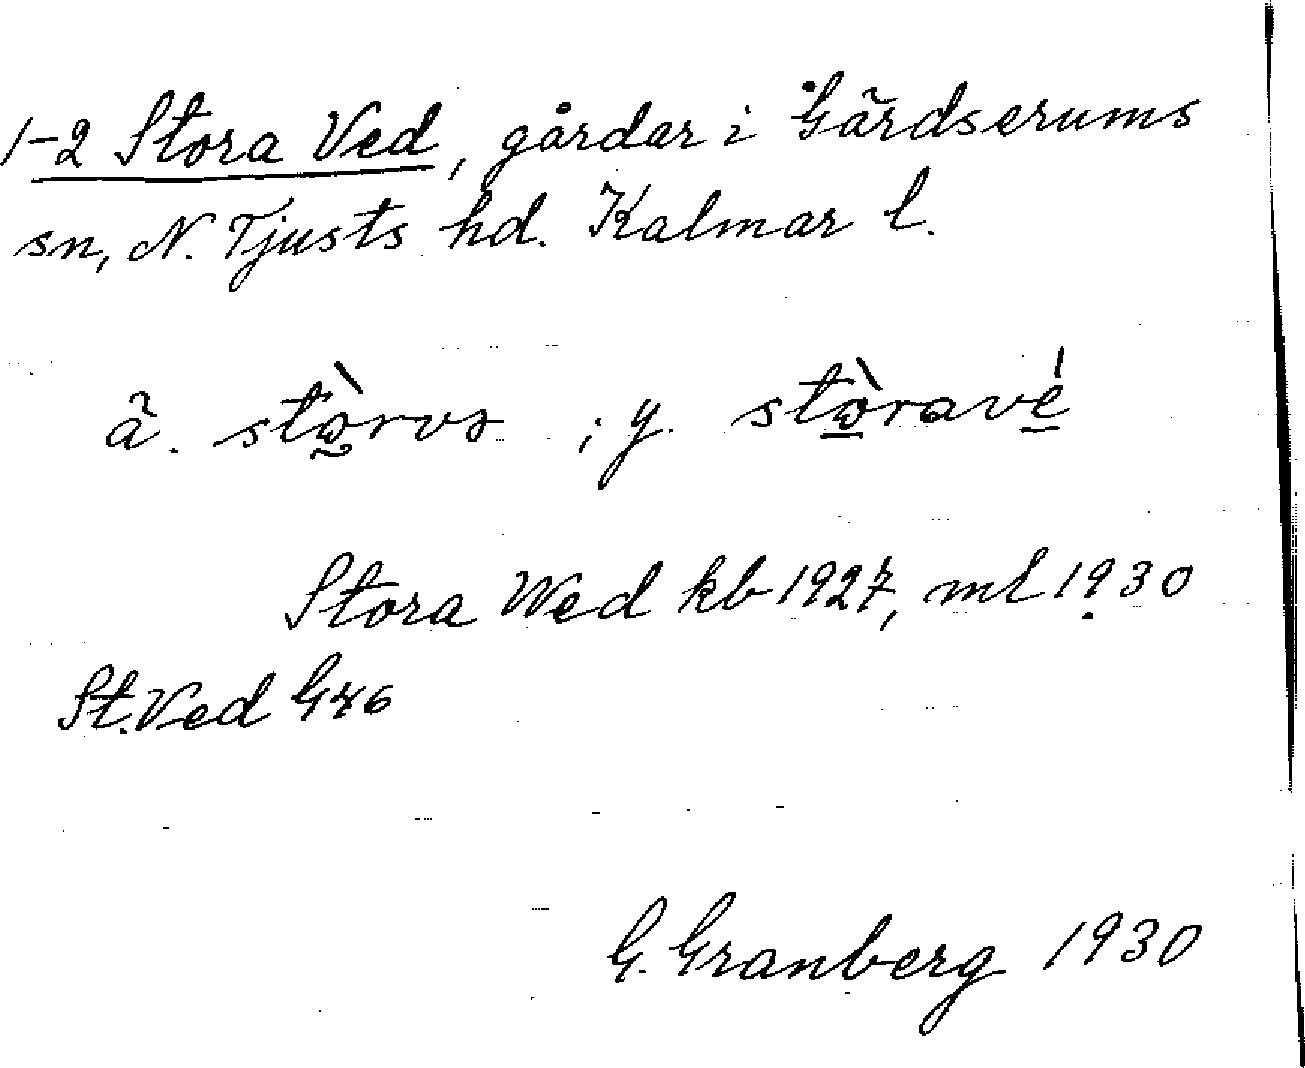 1-2 Stora Ved, gårdar i Gärdserums
sn, N. Tjusts hd. Kalmar l.
ä. stòrvə ; y. stòravé
Stora Wed kb 1927, ml 1930
St. Ved G76
G. Granberg 1930